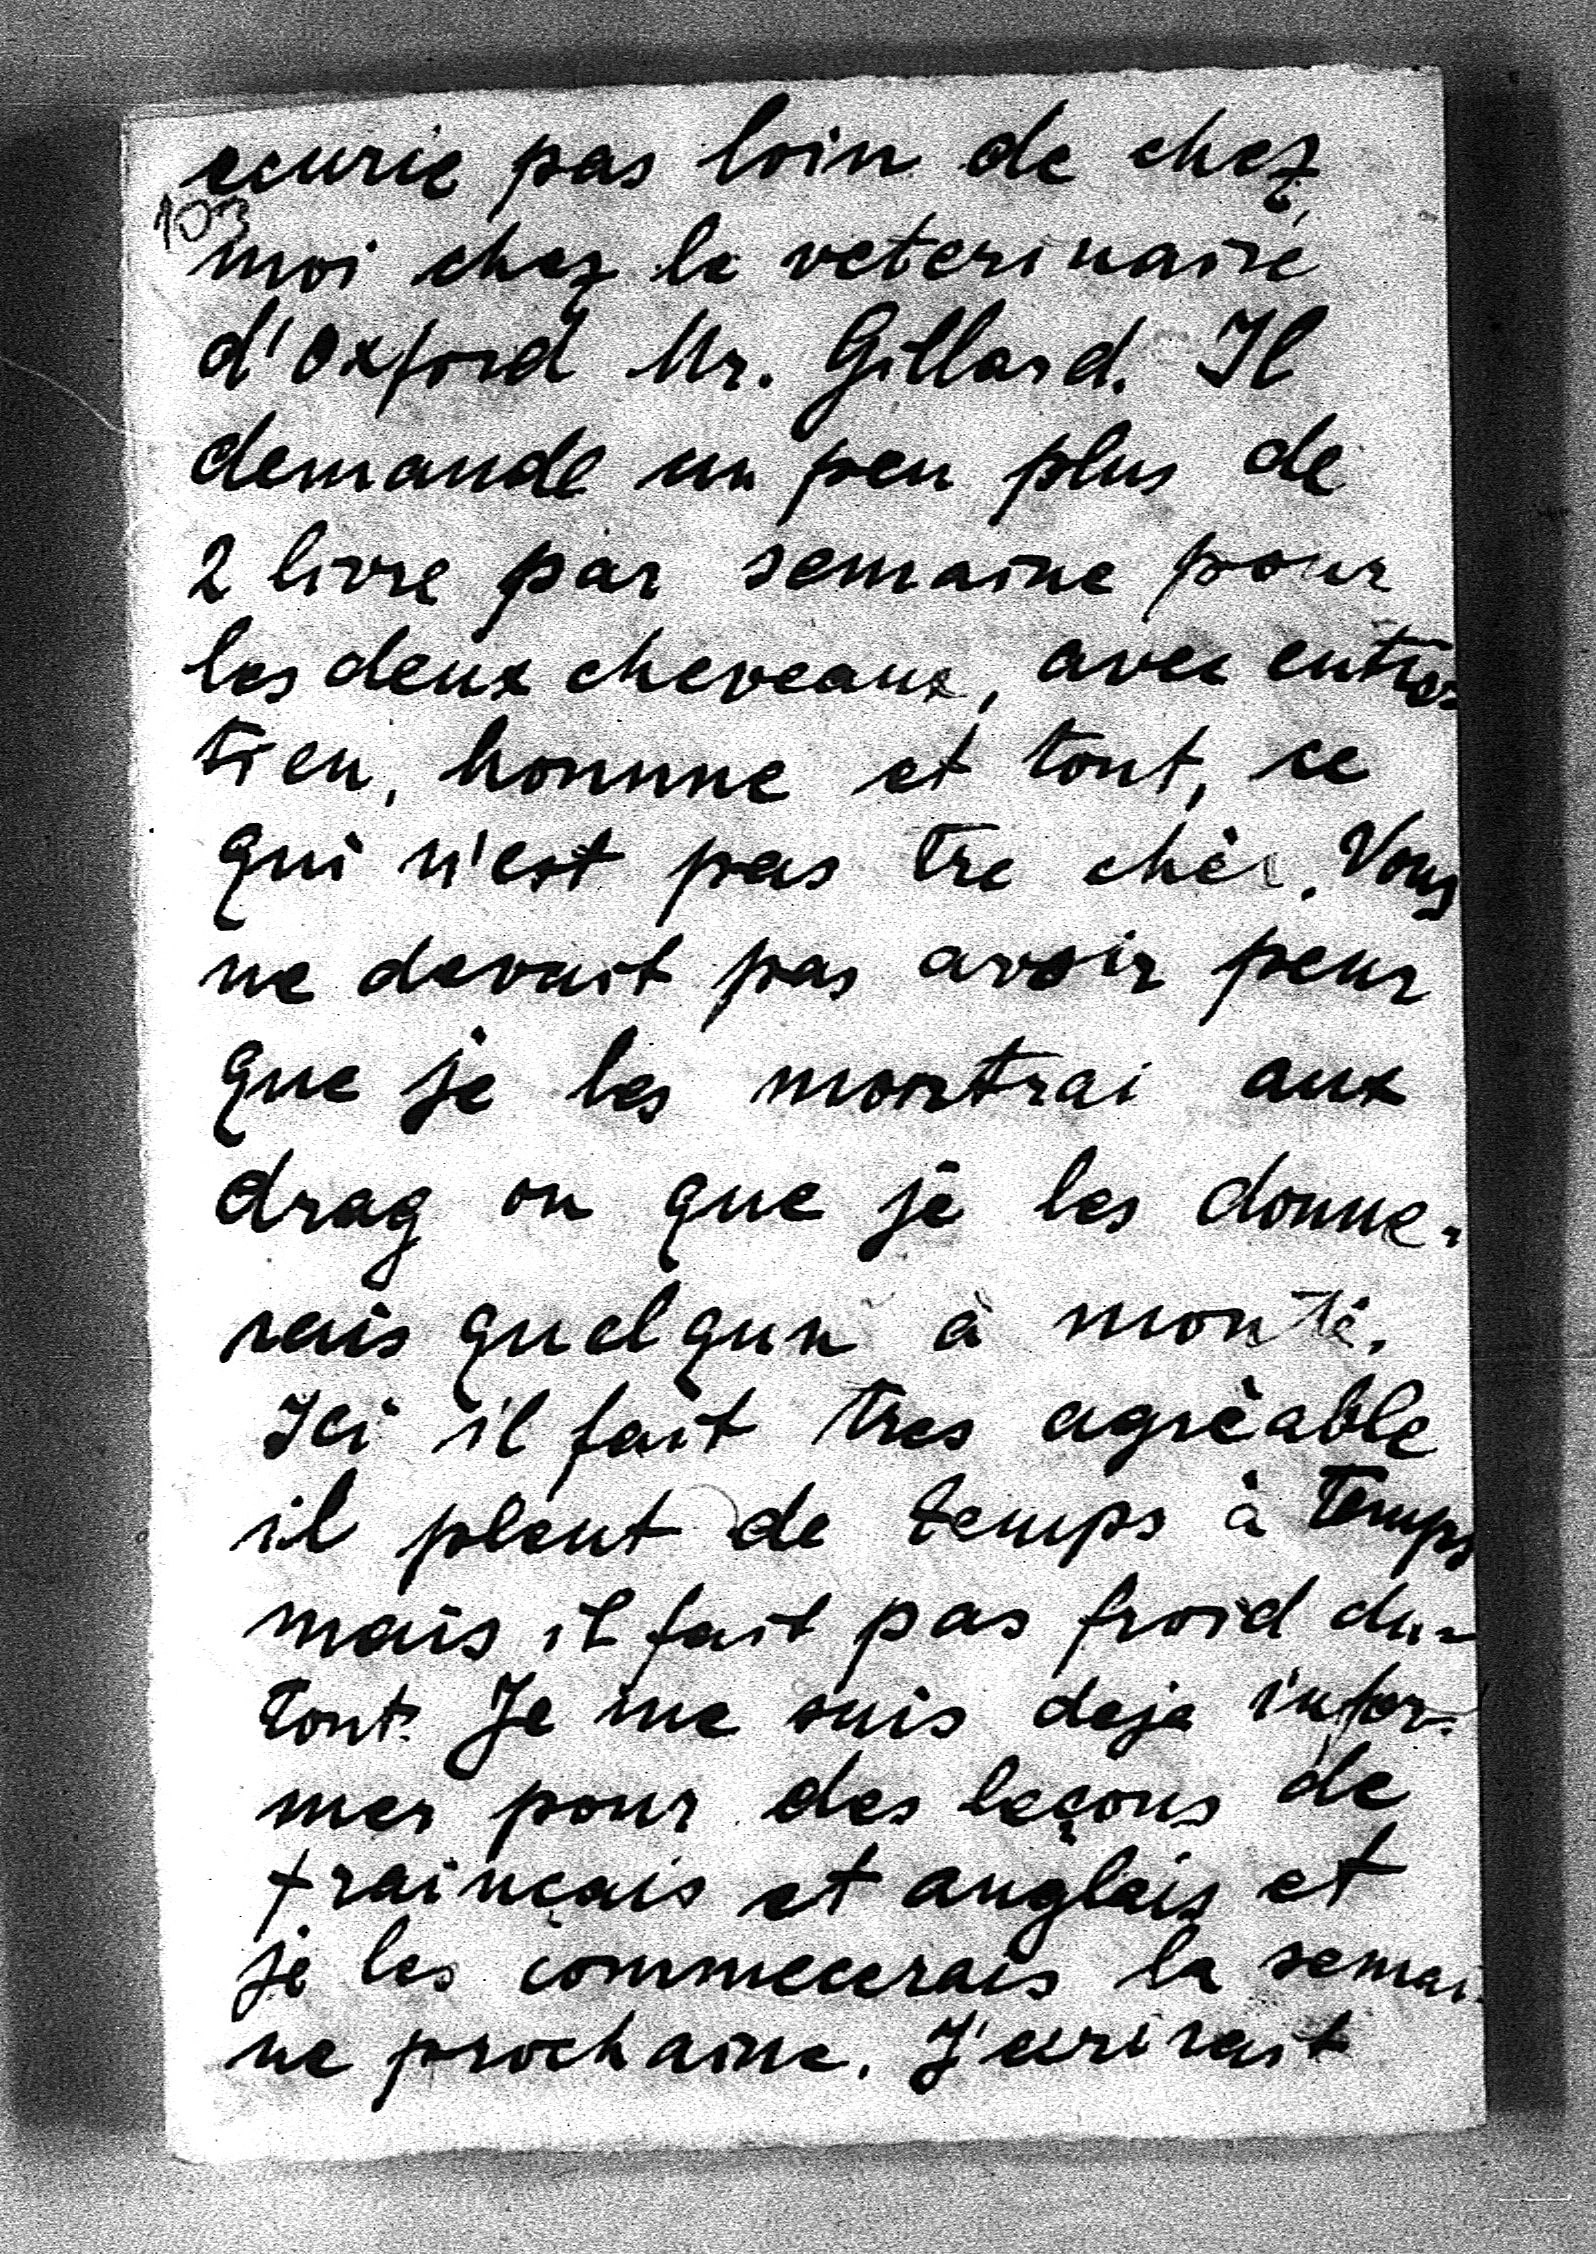 ecurie pas loin de chez
103
moi chez le veterinaire
d'Oxford Mr. Gillard. Il
demande un peu plus de
2 livre par semaine pour
les deux cheveaux, avec entre-
tien, homme et tout, ce
qui n'est pas tre chèr. Vous
ne devait pas avoir peur
que je les montrai aux
drag ou que je les donne-
rais quelqun à monté.
Ici il fait tres agrèable
il pleut de temps à temps
mais il fait pas froid du-
tout. Je me suis deja infor-
mer pour des leçons de
frainçais et anglais et
je les commecerais la semai-
ne prochaine. J'ecrirait